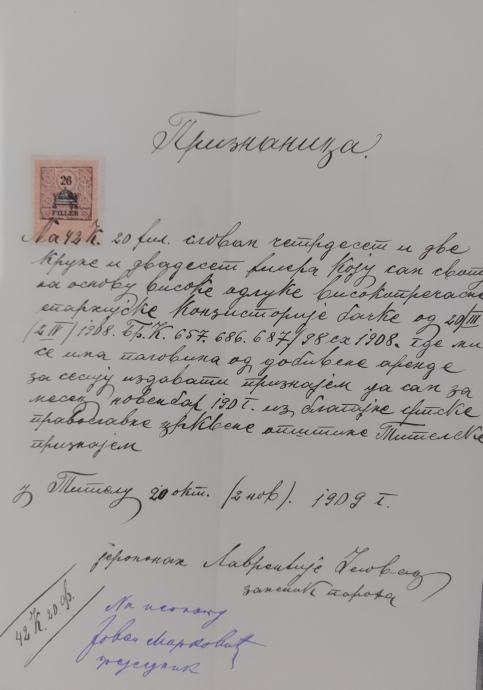 Признаница.
26
FILLER
На 42 К. 20 фил. словом четрдесет и две
круне и двадесет филера коју сам своту
на основу високе одлуке високопречасне
епархијске Конзисторије бачке од 20/III
/2 IV/ 1908. Бр. К. 657. 686. 687/98 ex 1908. где ми
се има половина од добивене аренде
за сесију издавати признајем да сам за
месец новембар 1909. из благајне српске
православне црквене општине Тителске
признајем
у Тителу 20 окт. (2 нов). 1909 г.
јеромонах Лаврентије
заменик пароха
42 К. 20 ф.
На исплату
Јован Марковић